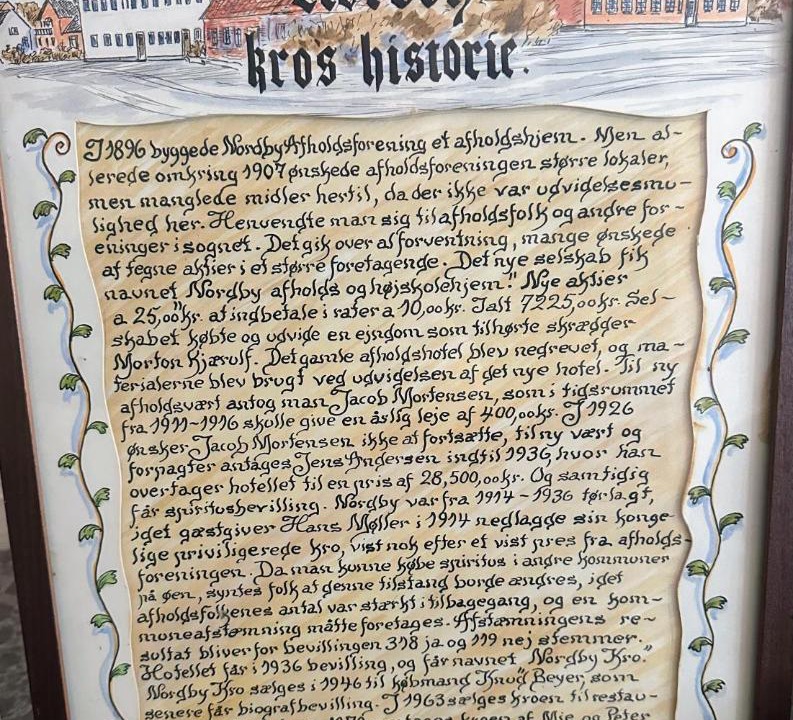 kro's historie.
I 1896 byggede Nordby Afholdsforening et afholdshjem. Men al-
lerede omkring 1907 ønskede afholdsforeningen større lokaler,
men manglede midler hertil, da der ikke var udvidelsesmu-
lighed her. Henvendte man sig til afholdsfolk og andre for-
eninger i sognet. Det gik over al forventning, mange ønskede
af tegne aktier i et større foretagende. Det nye selskab fik
navnet Nordby afholds og højskolehjem." Nye aktier
a 25,00kr. at indbetale i rater a 10,00kr. Ialt 7225,00kr. Sel-
skabet købte og udvide en ejendom som tilhørte skrædder
Morten Kjærulf. Det gamle afholdshotel blev nedrevet, og ma-
terialerne blev brugt ved udvidelsen af det nye hotel. Til ny
afholdsvært antog man Jacob Mortensen, som i tidsrummet
fra 1911-1916 skulle give en årlig leje af 400,00kr. I 1926
ønsker Jacob Mortensen ikke at fortsætte, til ny vært og
forpagter antages Jens Andersen indtil 1936, hvor han
overtager hotellet til en pris af 28,500,00kr. Og samtidig
får spiritusbevilling. Nordby var fra 1914-1936 tørlagt,
idet gæstgiver Hans Møller i 1914 nedlagde sin konge-
lige priviligerede kro, vist nok efter et vist pres fra afholds-
foreningen. Da man kunne købe spiritus i andre kommuner
på øen, syntes folk at denne tilstand burde ændres, idet
afholdsfolkenes antal var stærkt i tilbagegang, og en kom-
muneafstemning måtte foretages. Afstemningens re-
sultat bliver for bevillingen 318 ja og 119 nej stemmer.
Hotellet får i 1936 bevilling, og får navnet "Nordby Kro."
Nordby Kro sælges i 1946 til købmand Knud Beyer, som
senere får biografbevilling. I 1963 sælges kroen til restau-
kroen af Mie og Peter